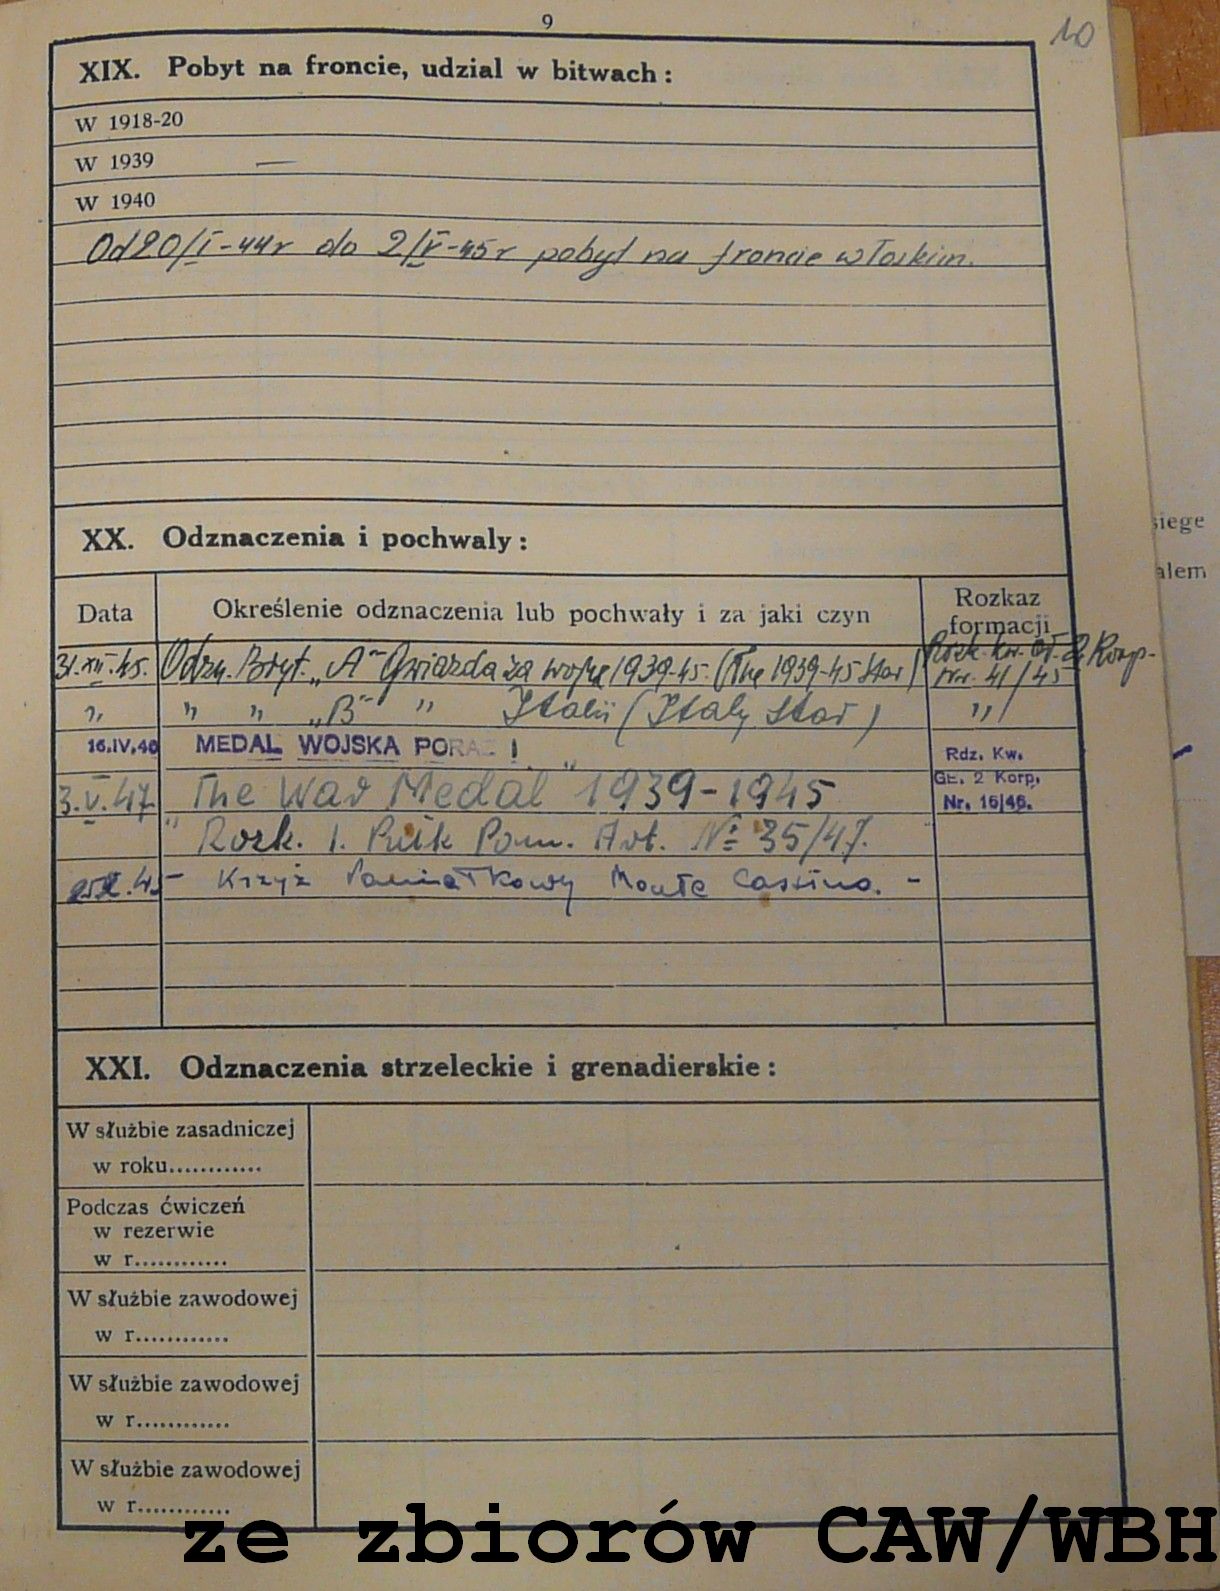 9
10
XIX. Pobyt na froncie, udzial w bitwach:
W 1918-20
W 1939 —
W 1940
Od 20/I-44r do 2/V-45r pobyt na froncie włoskim.
XX. Odznaczenia i pochwaly:
Data Określenie odznaczenia lub pochwały i za jaki czyn Rozkaz formacji
31.XII.45. Odzn. Bryt. „A" Gwiazda za wojnę 1939-45. (The 1939-45 Star) Rozk. kw. 2 Korp. Nr. 41/45
" " " „B" " Italii (Italy Star) "
16.IV.46 MEDAL WOJSKA PO RAZ I Rdz. Kw. GŁ. 2 Korp. Nr. 16/46.
3.V.47 The War Medal 1939-1945
" Rozk. 1. Pułk Pom. Art. Nr 35/47.
45 - Krzyż Pamiątkowy Monte Cassino. -
XXI. Odznaczenia strzeleckie i grenadierskie:
W służbie zasadniczej
w roku............
Podczas ćwiczeń
w rezerwie
w r............
W służbie zawodowej
w r............
W służbie zawodowej
w r............
W służbie zawodowej
w r............
siege
alem
ze zbiorów CAW/WBH